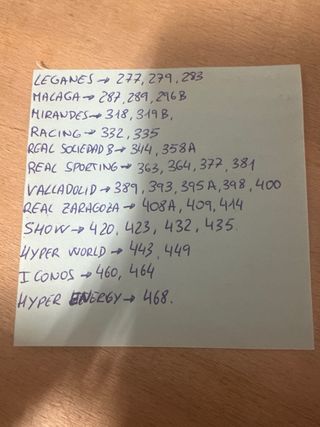 LEGANES → 277, 279, 283
MALAGA → 287, 289, 296B
MIRANDES → 318, 319B,
RACING → 332, 335
REAL SOCIEDAD B → 344, 358A
REAL SPORTING → 363, 364, 377, 381
VALLADOLID → 389, 393, 395A, 398, 400
REAL ZARAGOZA → 408A, 409, 414
SHOW → 420, 423, 432, 435
HYPER WORLD → 443, 449
ICONOS → 460, 464
HYPER ENERGY → 468.